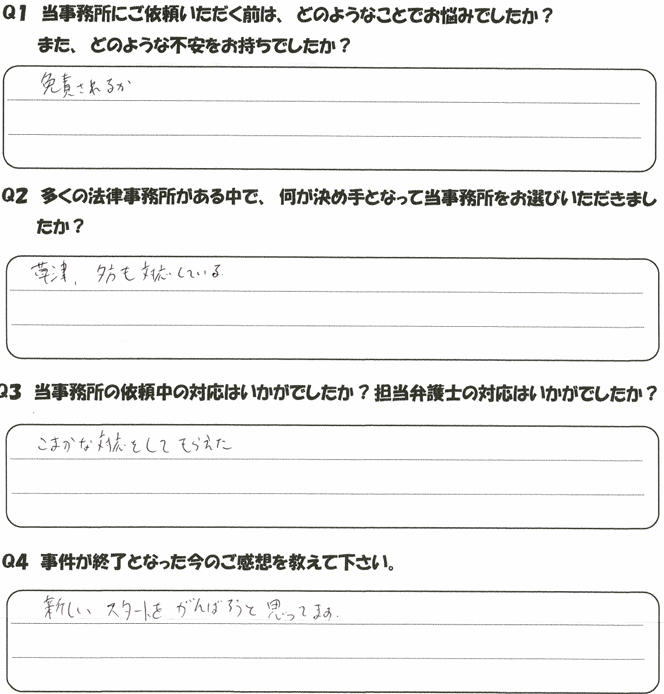 Q1 当事務所にご依頼いただく前は、どのようなことでお悩みでしたか？
また、どのような不安をお持ちでしたか？
免責されるか
Q2 多くの法律事務所がある中で、何が決め手となって当事務所をお選びいただきまし
たか？
草津、夕方も対応している。
Q3 当事務所の依頼中の対応はいかがでしたか？担当弁護士の対応はいかがでしたか？
こまかな対応をしてもらえた
Q4 事件が終了となった今のご感想を教えて下さい。
新しいスタートをがんばろうと思ってます。